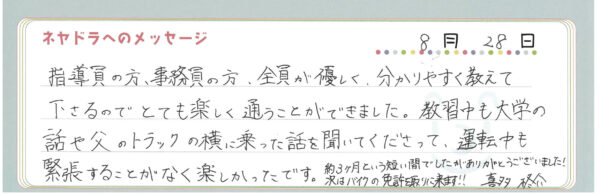 ネヤドラへのメッセージ
8月 28日
指導員の方、事務員の方、全員が優しく、分かりやすく教えて
下さるのでとても楽しく通うことができました。教習中も大学の
話や父のトラックの横に乗った話を聞いてくださって、運転中も
緊張することがなく楽しかったです。
約3ヶ月という短い間でしたがありがとうございました!
次はバイクの免許を取りに来ます!! 喜多